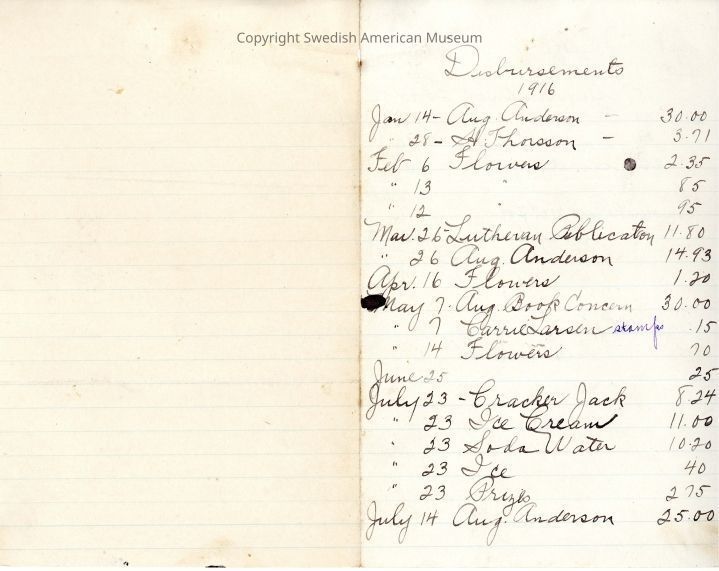 Copyright Swedish American Museum
Disbursements
1916
Jan 14- Aug. Anderson - 30.00
" 28- H. Thorsson - 3.71
Feb 6 Flowers 2.35
" 13 " 85
" 12 95
Mar. 26 Lutheran Publication 11.80
" 26 Aug. Anderson 14.93
Apr. 16 Flowers 1.20
May 7. Aug. Book Concern 30.00
" 7 Carrie Larsen stamps .15
" 14 Flowers 70
June 25 25
July 23 - Cracker Jack 8.24
" 23 Ice Cream 11.00
" 23 Soda Water 10.20
" 23 Ice 40
" 23 Prizes 2 75
July 14 Aug. Anderson 25.00